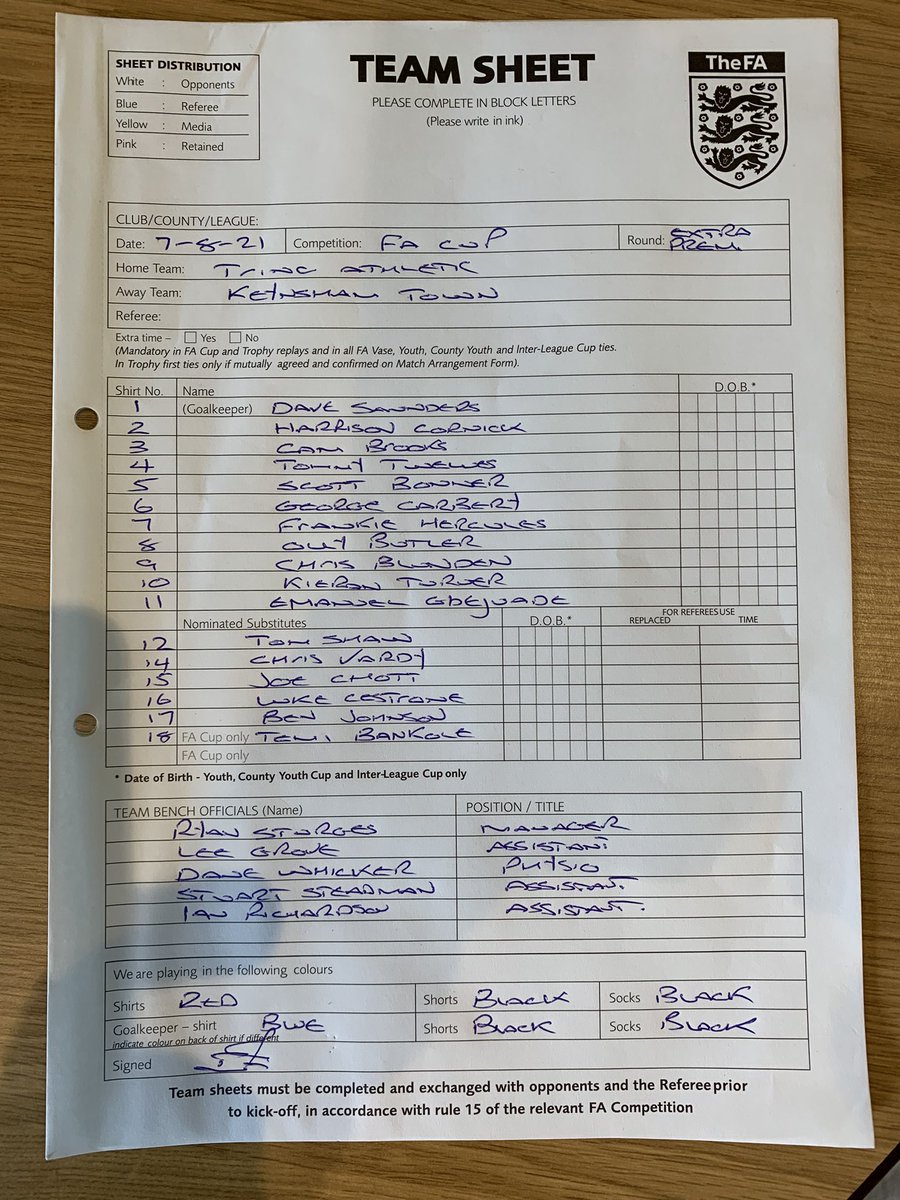 SHEET DISTRIBUTION
White : Opponents
Blue : Referee
Yellow : Media
Pink : Retained
TEAM SHEET
PLEASE COMPLETE IN BLOCK LETTERS
(Please write in ink)
TheFA
CLUB/COUNTY/LEAGUE:
Date: 7-8-21 Competition: FA CUP Round: EXTRA PREM.
Home Team: TRING ATHLETIC
Away Team: KEYNSHAM TOWN
Referee:
Extra time – Yes No
(Mandatory in FA Cup and Trophy replays and in all FA Vase, Youth, County Youth and Inter-League Cup ties.
In Trophy first ties only if mutually agreed and confirmed on Match Arrangement Form).
Shirt No. Name D.O.B.*
1 (Goalkeeper) DAVE SAUNDERS
2 HARRISON CORNICK
3 CAM BROOKS
4 TOMMY TWELVES
5 SCOTT BONNER
6 GEORGE CARBERY
7 FRANKIE HERCULES
8 OLLY BUTLER
9 CHRIS BLUNDEN
10 KIERON TURNER
11 EMANUEL GBEJUADE
Nominated Substitutes D.O.B.* FOR REFEREES USE
REPLACED TIME
12 TOM SHAW
14 CHRIS VARDY
15 JOE CHOTT
16 LUKE CESTRONE
17 BEN JOHNSON
18 FA Cup only TEMI BANKOLE
FA Cup only
* Date of Birth - Youth, County Youth Cup and Inter-League Cup only
TEAM BENCH OFFICIALS (Name) POSITION / TITLE
RYAN STURGES MANAGER
LEE GROVE ASSISTANT
DANE WHICKER PHYSIO
STUART STEADMAN ASSISTANT.
IAN RICHARDSON ASSISTANT.
We are playing in the following colours
Shirts RED Shorts BLACK Socks BLACK
Goalkeeper – shirt BLUE Shorts BLACK Socks BLACK
indicate colour on back of shirt if different
Signed
Team sheets must be completed and exchanged with opponents and the Referee prior
to kick-off, in accordance with rule 15 of the relevant FA Competition